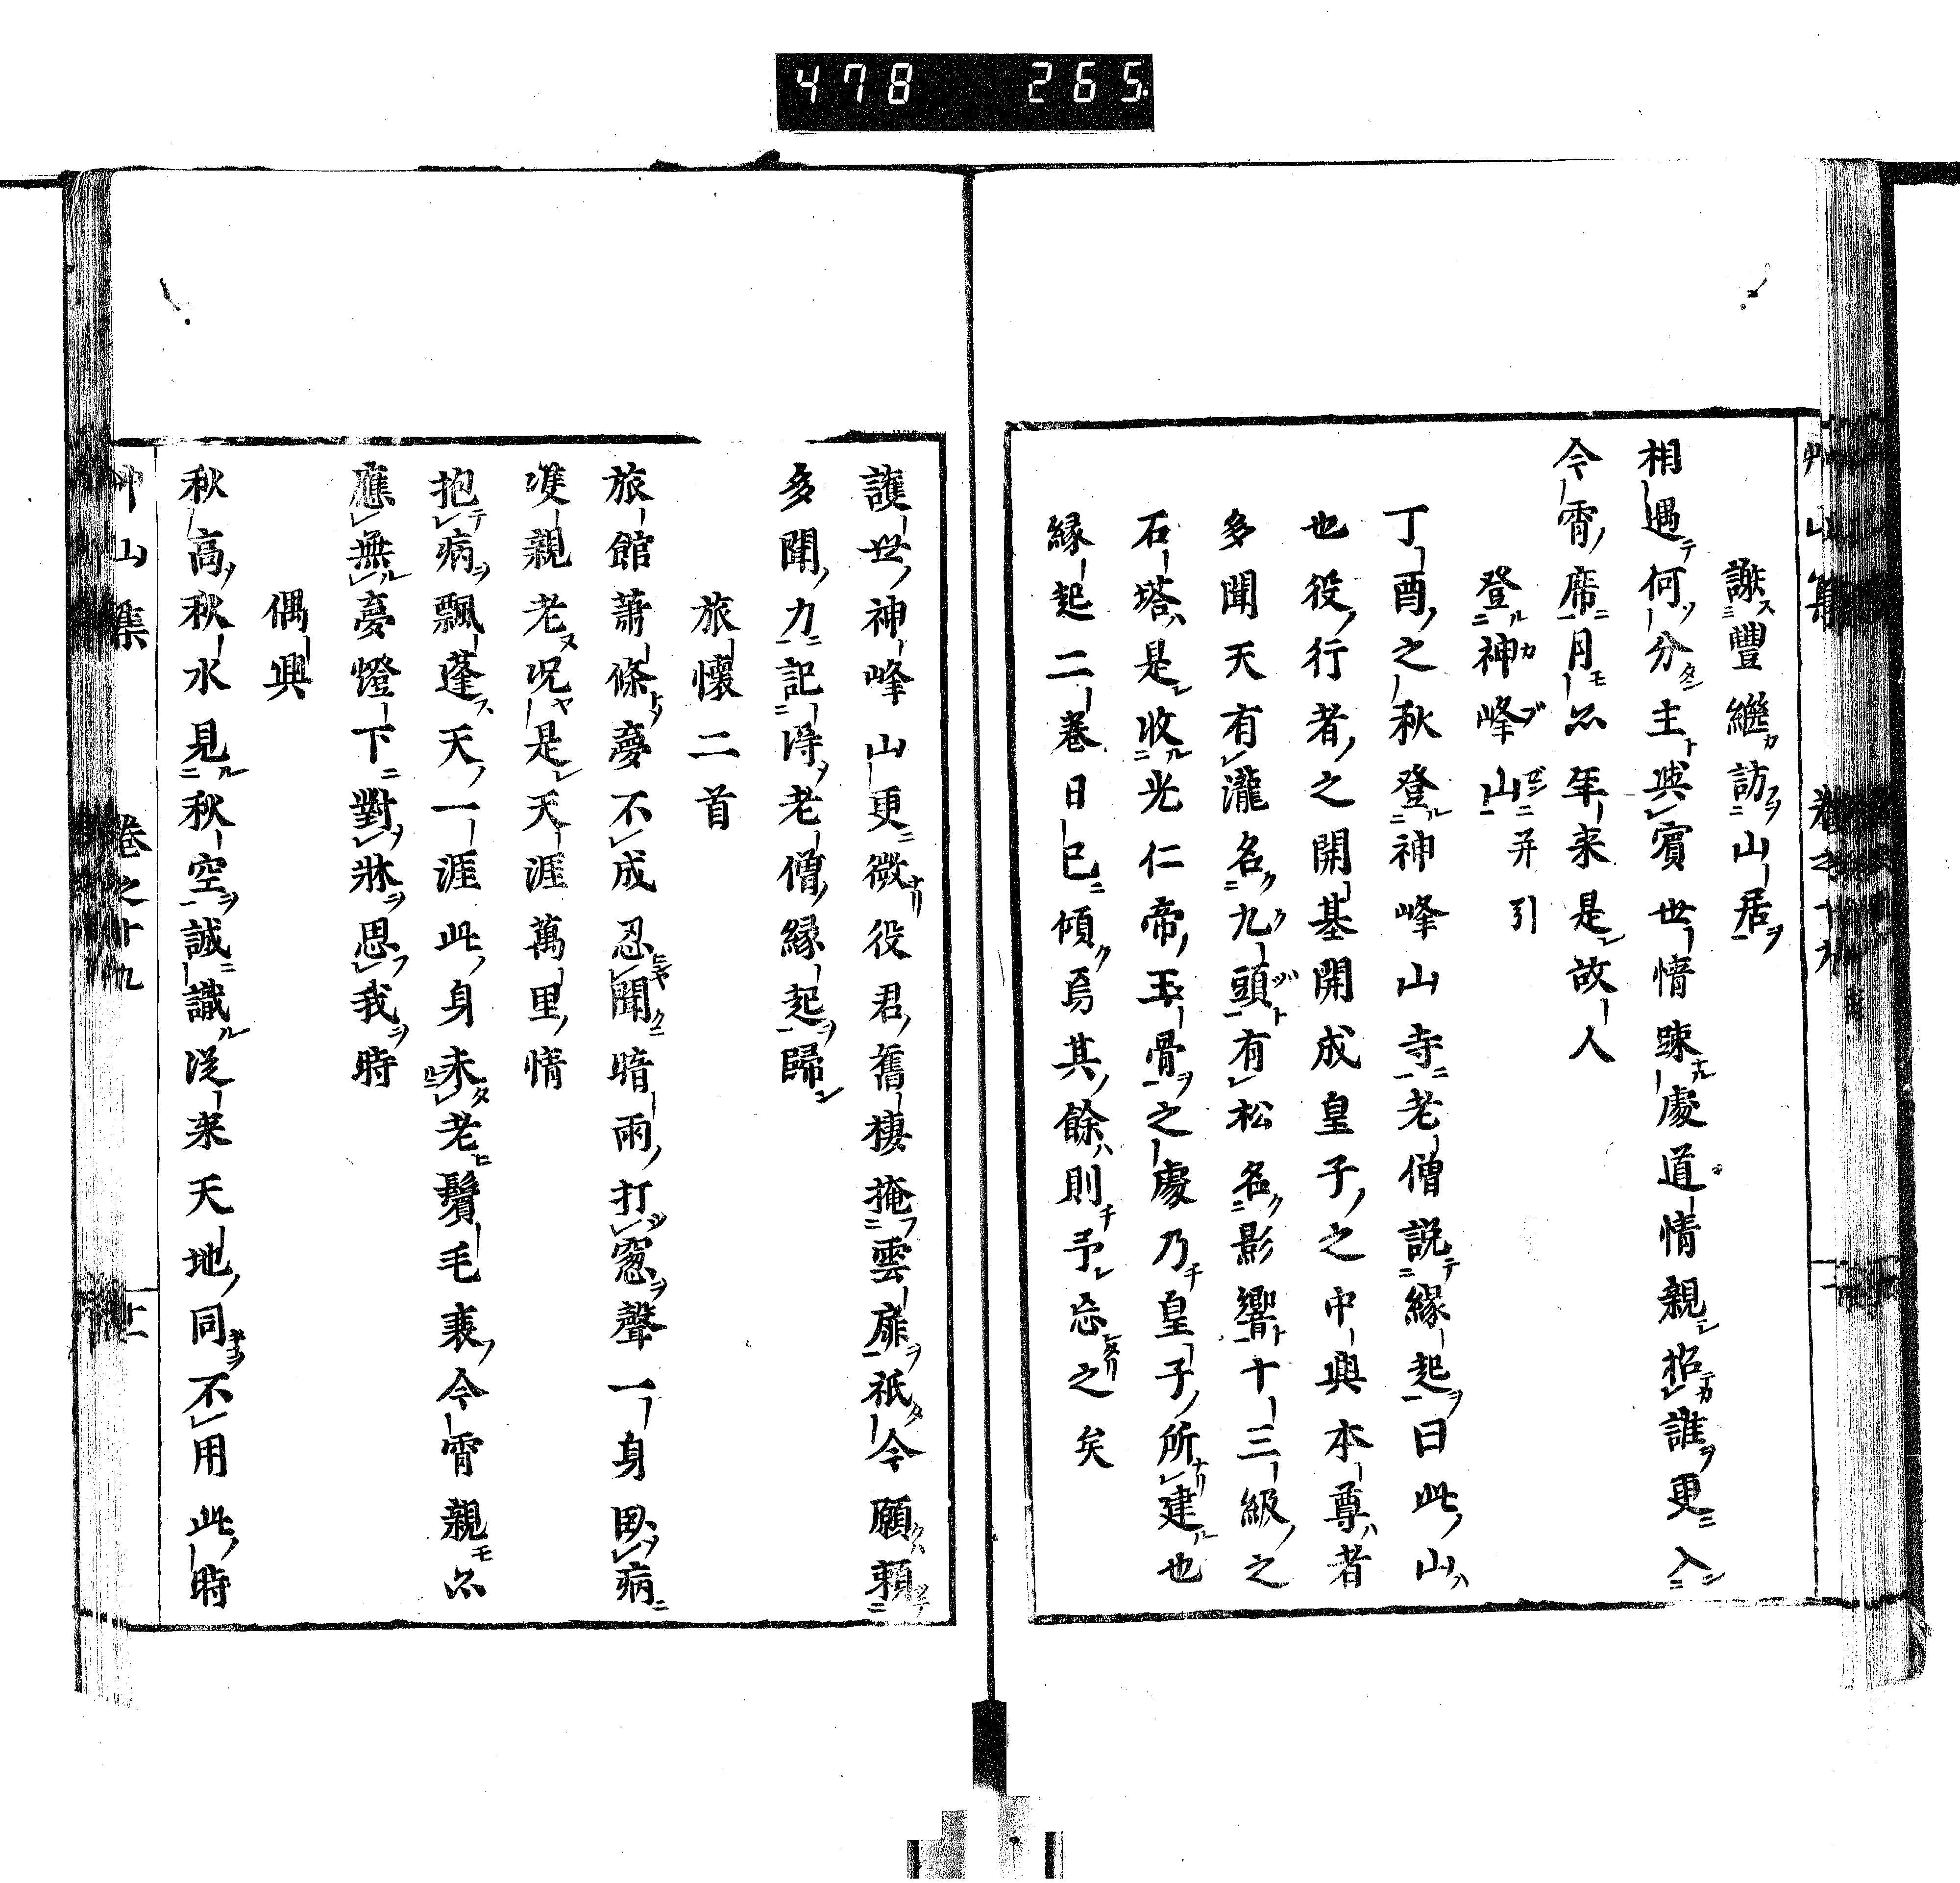 478 265
謝豐繼訪山居
相遇何分主與賓世情踈處道情親招誰更入
今霄席月亦年来是故人
登神峰山并引
丁酉之秋登神峰山寺老僧説縁起曰此山
也役行者之開基開成皇子之中興本尊者
多聞天有瀧名九頭有松名影響十三級之
石塔是收光仁帝玉骨之處乃皇子所建也
縁起二巻日已傾焉其餘則予忘之矣
護世神峰山更微役君舊棲掩雲扉祇今願頼
多聞力記得老僧縁起歸
旅懷二首
旅館蕭條夢不成忍聞暗雨打窓聲一身異病
雙親老况是天涯萬里情
抱病飄蓬天一涯此身未老鬢毛衰今霄親亦
應無夢燈下對牀思我時
偶興
秋高秋水見秋空誠識從来天地同不用此時
艸山集 巻之十九